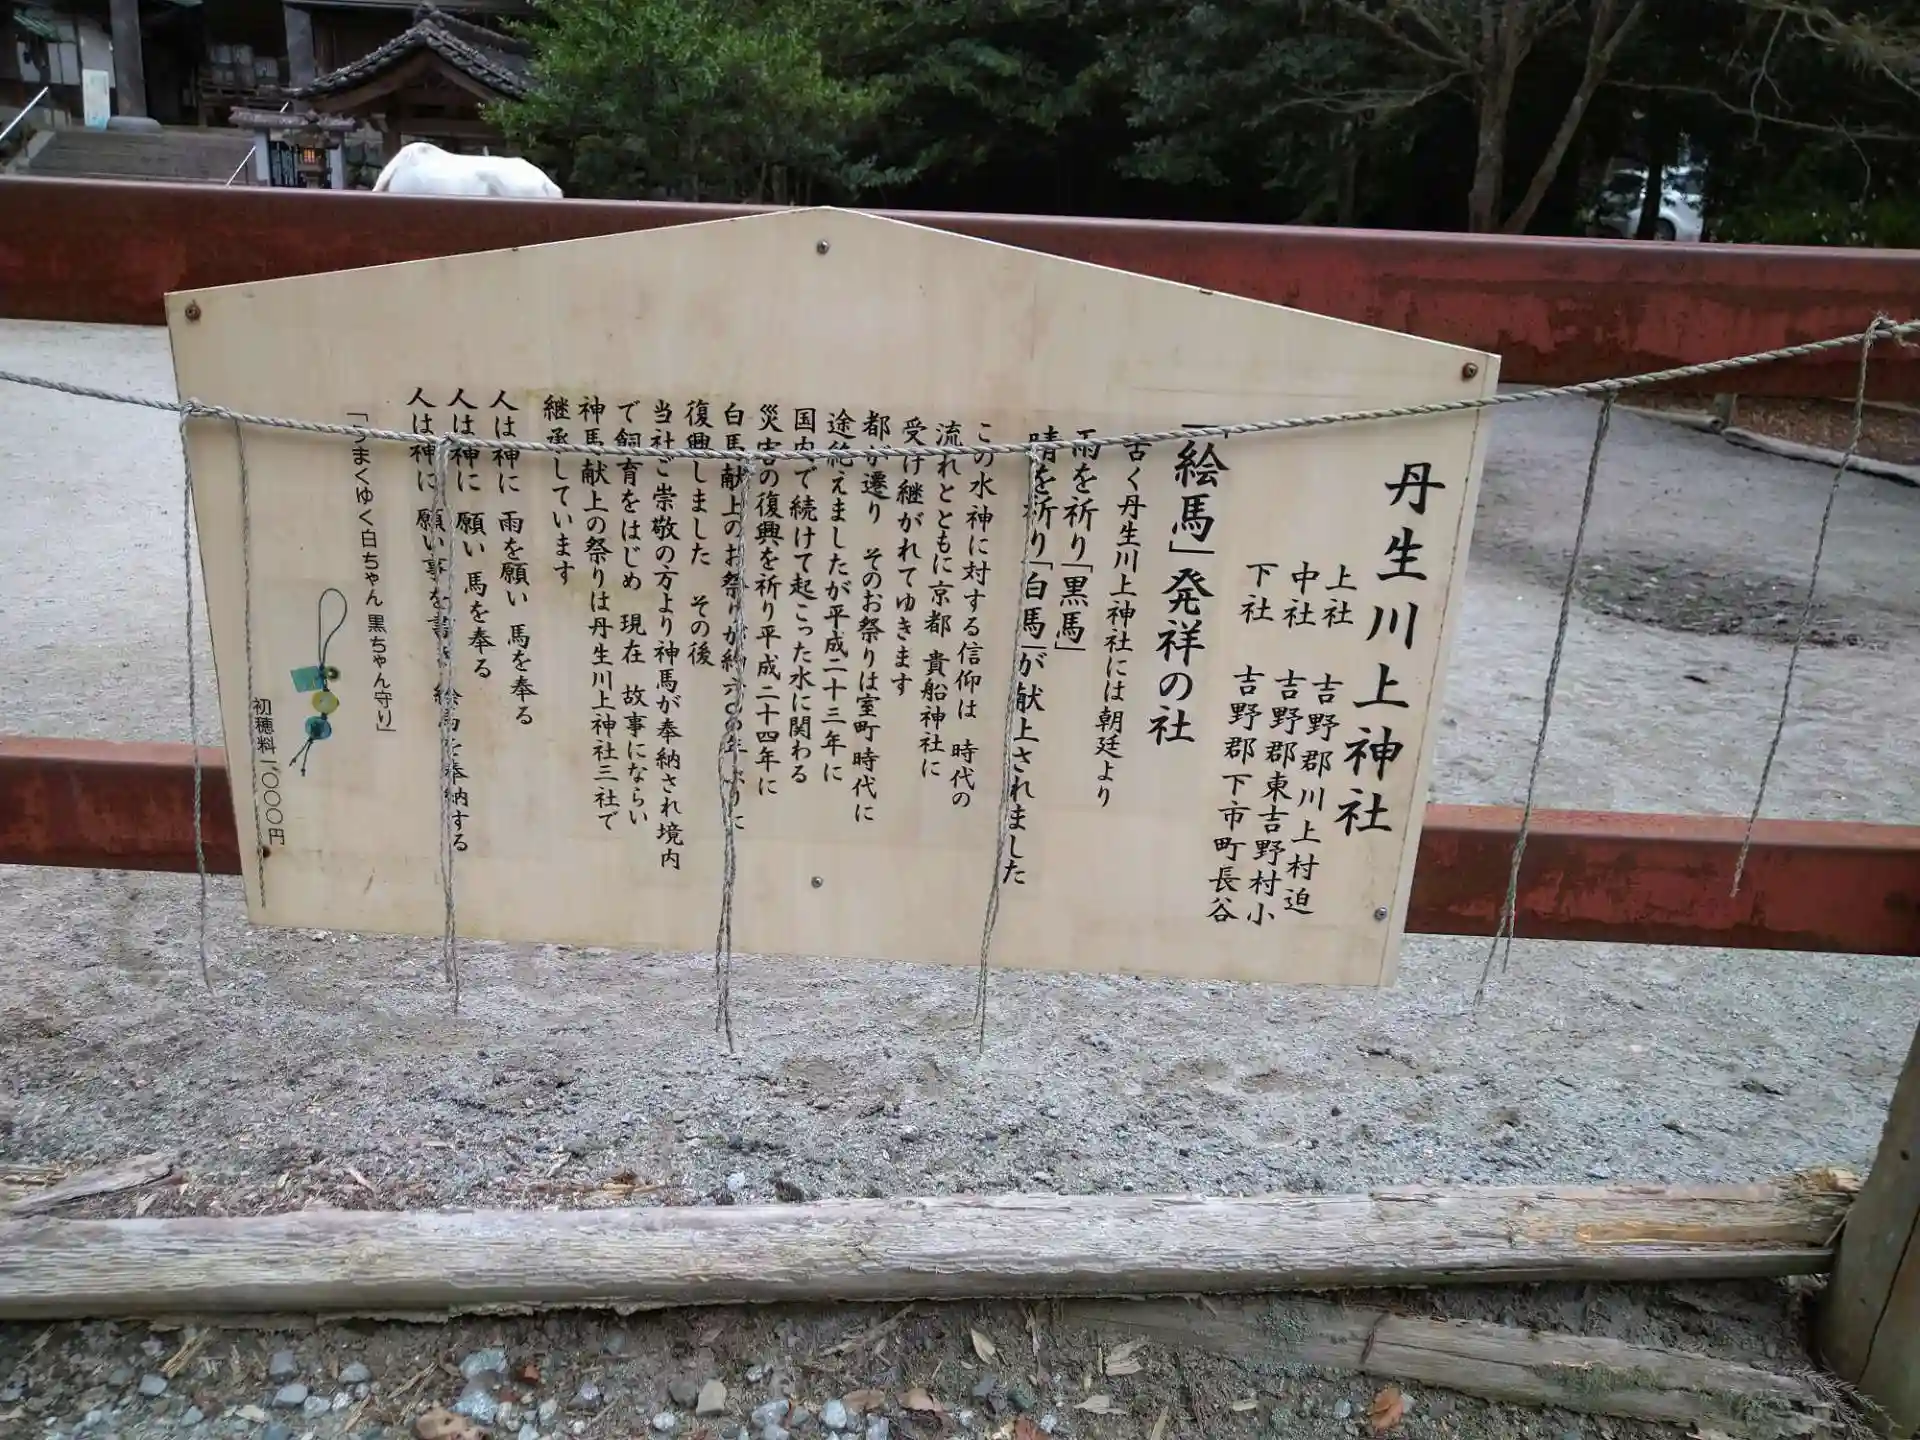 丹生川上神社
上社 吉野郡川上村迫
中社 吉野郡東吉野村小
下社 吉野郡下市町長谷
「絵馬」発祥の社
古く丹生川上神社には朝廷より
雨を祈り「黒馬」
晴を祈り「白馬」が献上されました
この水神に対する信仰は 時代の
流れとともに京都 貴船神社に
受け継がれてゆきます
都が遷り そのお祭りは室町時代に
途絶えましたが平成二十三年に
国内で続けて起こった水に関わる
災害の復興を祈り平成二十四年に
白馬献上のお祭りが約六〇〇年ぶりに
復興しました その後
当社ご崇敬の方より神馬が奉納され境内
で飼育をはじめ 現在 故事にならい
神馬献上の祭りは丹生川上神社三社で
継承しています
人は神に 雨を願い 馬を奉る
人は神に 願い 馬を奉る
人は神に 願い事を書き 絵馬を奉納する
「うまくゆく白ちゃん黒ちゃん守り」
初穂料一〇〇〇円